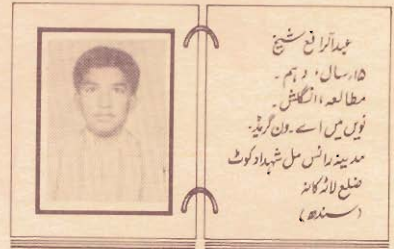 عبدالرافع شیخ
۱۵ سال، دہم۔
مطالعہ، انگلش۔
نویں میں اے۔ون گریڈ۔
مدینہ رائس مل شہدادکوٹ
ضلع لاڑکانہ
(سندھ)